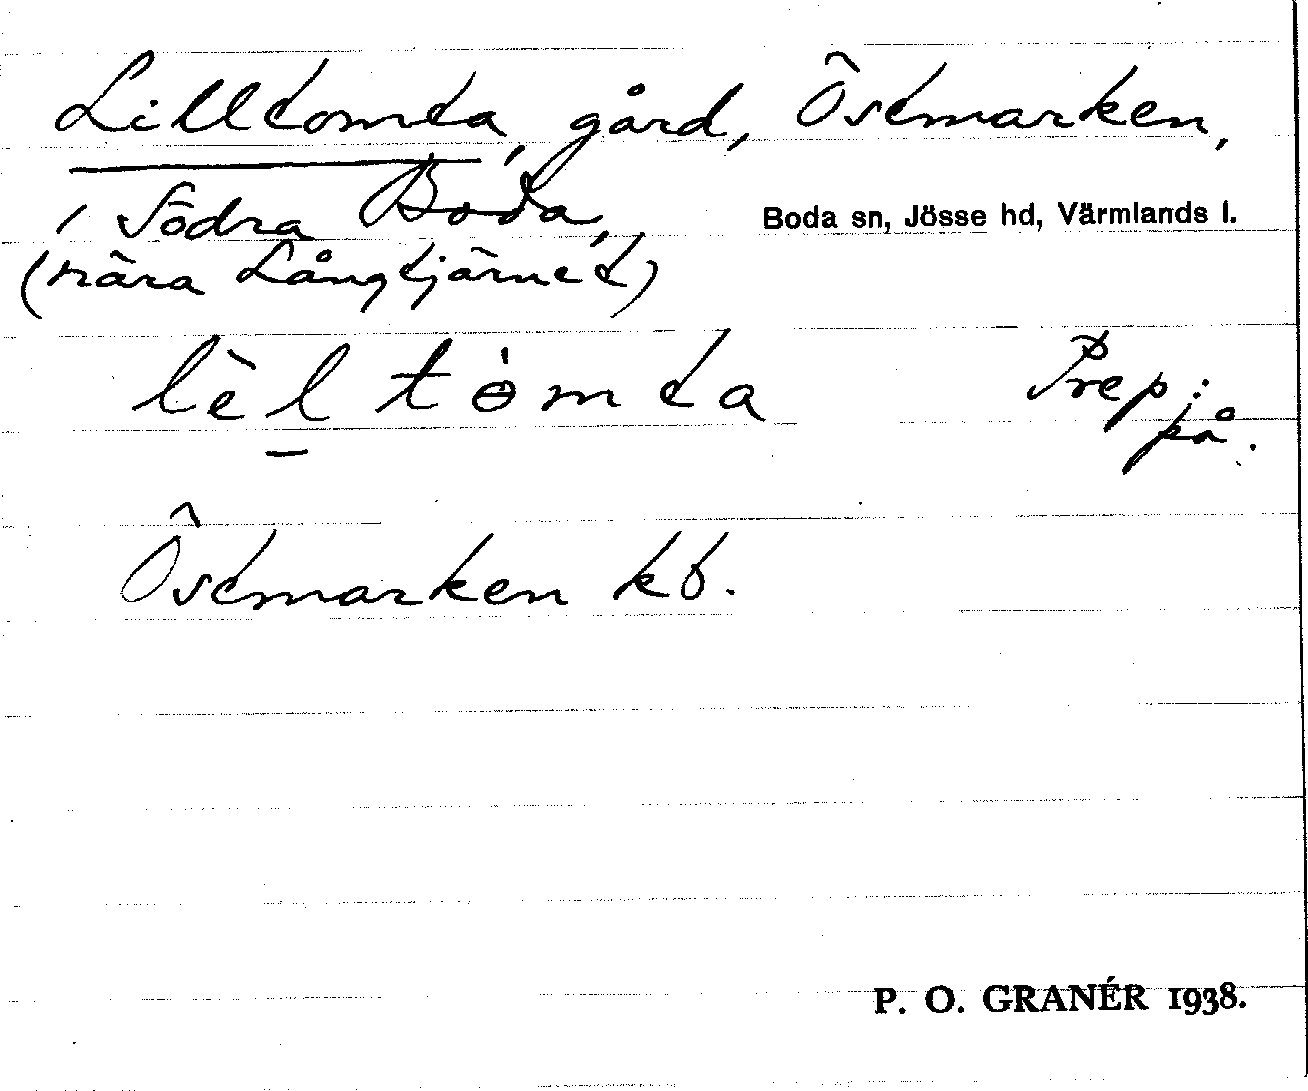 Lilltomta, gård, Östmarken,
i Södra Boda, Boda sn, Jösse hd, Värmlands l.
(nära Långtjärnet)
lèl tɵ̇mta Prep:
på.
Östmarken kb.
P. O. GRANÉR 1938.